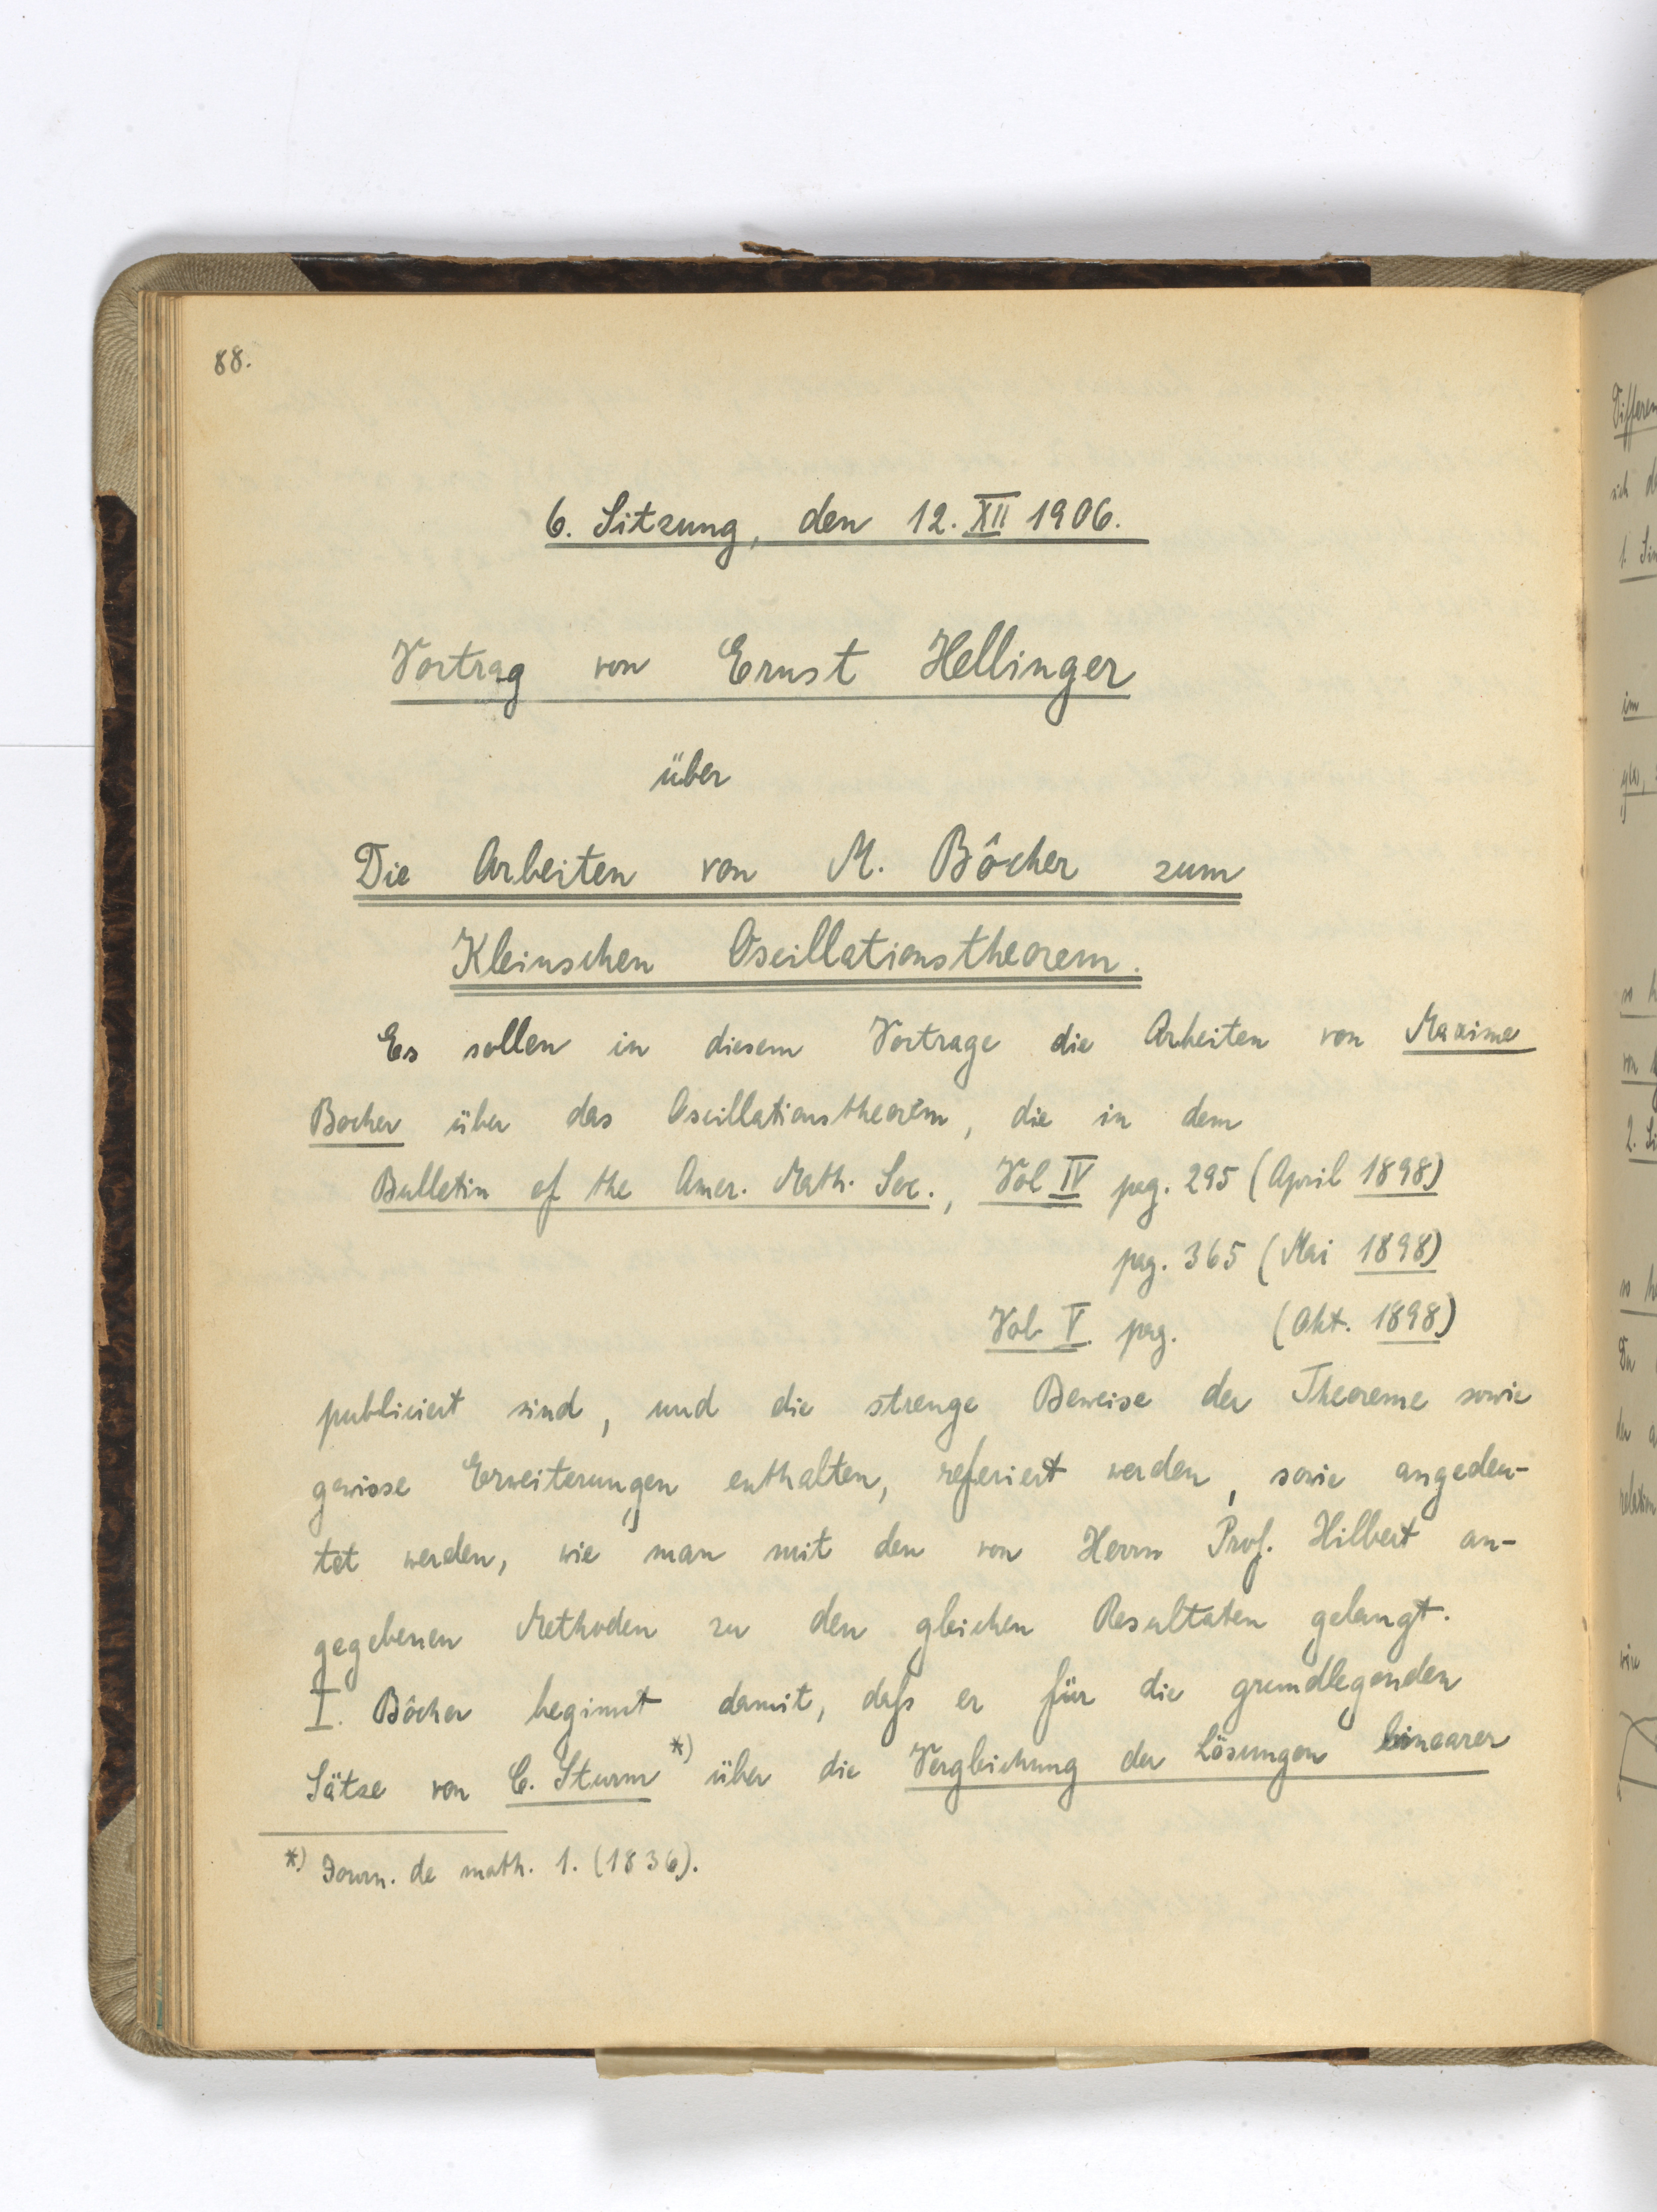 88.
6. Sitzung, den 12. XII 1906.
Vortrag von Ernst Hellinger
über
Die Arbeiten von M. Bôcher zum
Kleinschen Oscillationstheorem.
Es sollen in diesem Vortrage die Arbeiten von Maxime
Bocher über das Oscillationstheorem, die in dem
Bulletin of the Amer. Math. Soc., Vol IV pag. 295 (April 1898)
pag. 365 (Mai 1898)
Vol V. pag. (Okt. 1898)
publiciert sind, und die strenge Beweise der Theoreme sowie
gewisse Erweiterungen enthalten, referiert werden, sowie angedeu-
tet werden, wie man mit den von Herrn Prof. Hilbert an-
gegebenen Methoden zu den gleichen Resultaten gelangt.
I. Bôcher beginnt damit, daß er für die grundlegenden
Sätze von C. Sturm *) über die Vergleichung der Lösungen linearer
*) Journ. de math. 1. (1836).
Differen
sich
1. Sin
im
so h
von
2. Si
so h
Da
relation
wie